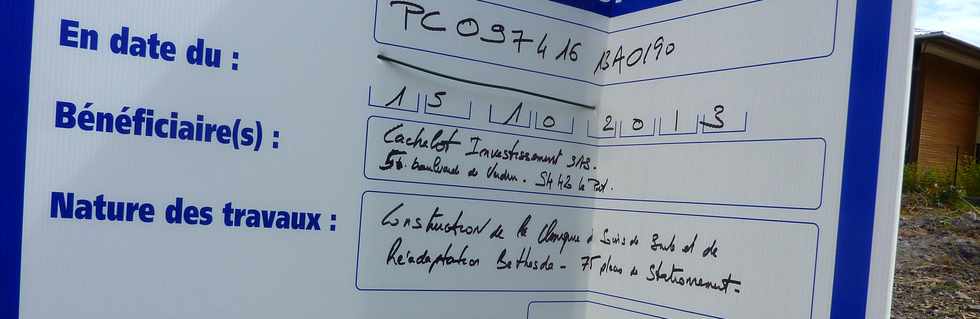 PC 097416 13A0190
En date du : 15 10 2013
Bénéficiaire(s) : Cachalot Investissement SAS.
boulevard de Verdun. 97420 le Port.
Nature des travaux : Construction de la Clinique de Soins de Suite et de
Réadaptation Bethesda - 75 places de Stationnement -